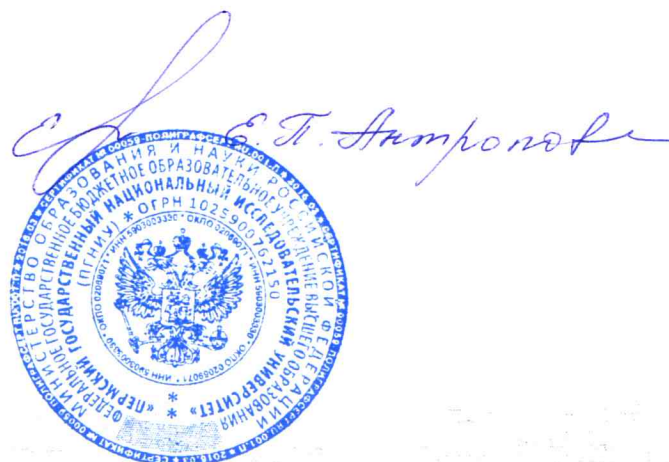 Е. П. Антропова
МИНИСТЕРСТВО ОБРАЗОВАНИЯ И НАУКИ РОССИЙСКОЙ ФЕДЕРАЦИИ
ФЕДЕРАЛЬНОЕ ГОСУДАРСТВЕННОЕ БЮДЖЕТНОЕ ОБРАЗОВАТЕЛЬНОЕ УЧРЕЖДЕНИЕ ВЫСШЕГО ОБРАЗОВАНИЯ
«ПЕРМСКИЙ ГОСУДАРСТВЕННЫЙ НАЦИОНАЛЬНЫЙ ИССЛЕДОВАТЕЛЬСКИЙ УНИВЕРСИТЕТ»
(ПГНИУ) * ОГРН 1025900762150
* ОКПО 02069071 * ИНН 5903003330 * ОКПО 02069071 * ИНН 5903003330